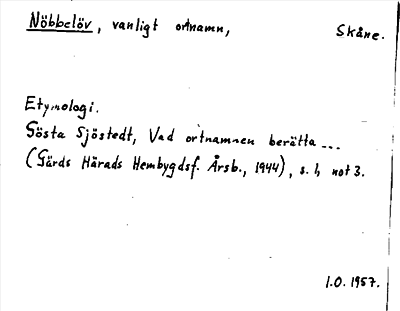 Nöbbelöv, vanligt ortnamn, Skåne.
Etymologi.
Gösta Sjöstedt, Vad ortnamnen berätta...
(Gärds Härads Hembygdsf. Årsb., 1944), s. 1, not 3.
I.O. 1957.